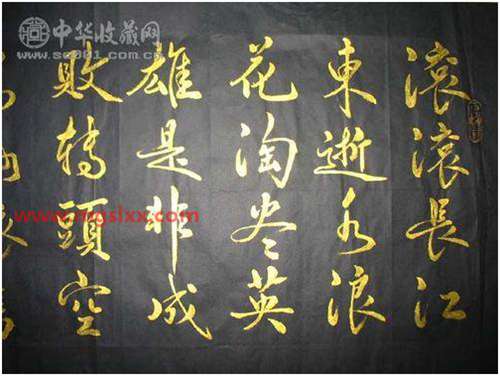 中华收藏网
www.sc001.com.cn
滚滚長江
東逝水浪
花淘尽英
雄是非成
敗轉頭空
www.mgslxx.com